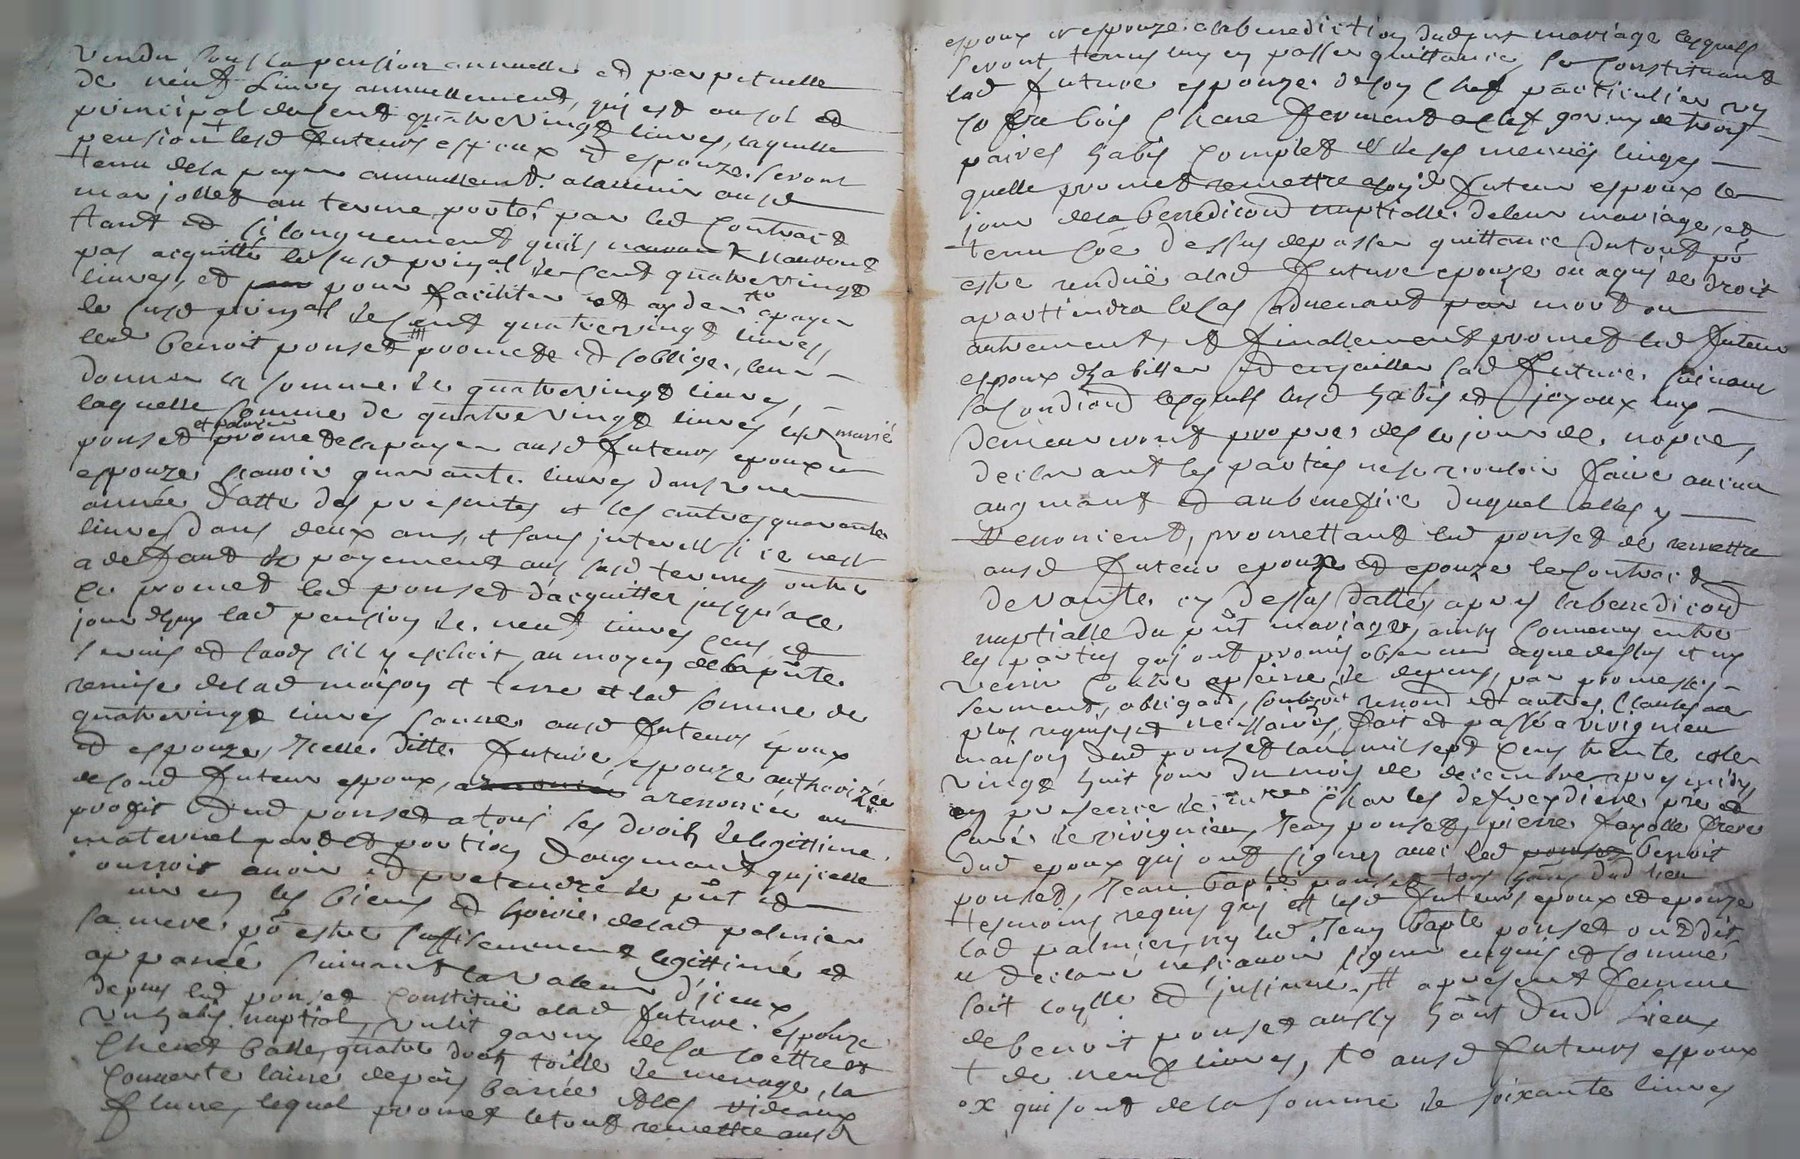 vendu sous la pension annuelle et perpetuelle
de neuf livres annuellement, qui est au sol et
principal de cent quatrevingt livres, laquelle
pension lesd futeurs espoux et espouze seront
tenu de la payer annuellement a ladvenir aud
marjollet au terme porté par led contract
tant et si longuement quils nauront
pas acquitté le susd prinpal de cent quatrevingt
livres, et pour faciliter et ayder a payer
le susd prinpal de cent quatrevingt livres,
led benoit ponset promet et soblige, leur
donner la somme de quatrevingt livres,
laquelle somme de quatrevingt livres led
ponset promet de la payer ausd futeurs epoux et
espouze scavoir quarante livres dans une
année datte des presentes et les autres quarante
livres dans deux ans, et sans interest si ce nest
a deffaut de payement aus susd termes, outre
ce promet led ponset dacquitter jusqu'a ce
jour dhuy lad pension de neuf livres cens et
servis et laods sil y eschoit, au moyen de la pnte
remise de lad maison et terre et lad somme de
quatrevingt livres donné ausd futeurs epoux
et espouze, icelle ditte future espouze authorizée
de sond futeur espoux, a renoncé au
proffit dud ponset a tous les droits de legittime
maternel part et portion daugmant qu'icelle
ourroit avoir et pretendre de pnt et
sur les biens et hoirie de lad palmier
sa mere, po estre suffisemment legittimé et
appanée suivant la valeur d'iceux
depuis led ponset constitue a lad future espouze
un habis nuptial, un lit garny de sa coettre et
chevet balle, quatre draps toille de menage, la
couverte laine depais barrée et les rideaux
fleuret, lequel promet le tout remettre ausd
espoux et espouze a la benediction dud pnt mariage lesquels
seront tenus luy en passer quittance, se constituant
lad future espouze de son chef particulier un
coffre bois chene fermant a clef garny de trois
paires habis complet et de ses menus linges
quelle promet remettre a sond futeur espoux le
jour de la benediction nuptialle de leur mariage, et
tenu coe dessus de passer quittance du tout po
estre rendue a lad future epouze ou a qui de droit
apartiendra le cas advenant par mort ou
autrement, et finallement promet led futeur
espoux dhabiller et enjoailler sad future suivant
sa condition lesquels susd habis et joyaux luy
demeureront propres des le jour de nopces,
declarant les parties ne se vouloir faire aucun
augmant et au benefice duquel elles y
renoncient, promettant led ponset de remettre
ausd futeur epoux et epouze le contract
de vante cy dessus dattés apres la benediction
nuptialle du pnt mariage, ainsy convenu entre
les parties qui ont promis observer ce que dessus et ny
venir contre a peine de depens, par promesses
serment, obligaon, soubzon renonon et autres clauses a ce
plus requises et necessaires, fait et passé a virignieu
maison dud ponset lan mil sept cens trente et le
vingt huit jour du mois de decembre apres midy
en presence de Charles defreydiere pre et
curé de virignieu, Jean ponset, pierre fayolle frere
dud epoux qui ont signez avec led benoit
ponset, Jean bapte ponset tous hans dud lieu
tesmoins requis qui et lesd futeurs epoux et epouze
lad palmier, ny led Jean bapte ponset ont dit
et declaré ne scavoir signer enquis et sommé
soit conllé et insinué. # a present femme
de benoit ponset aussy hant dud lieux
+ de neuf livres, to ausd futeurs espoux
ox qui sont de la somme de soixante livres